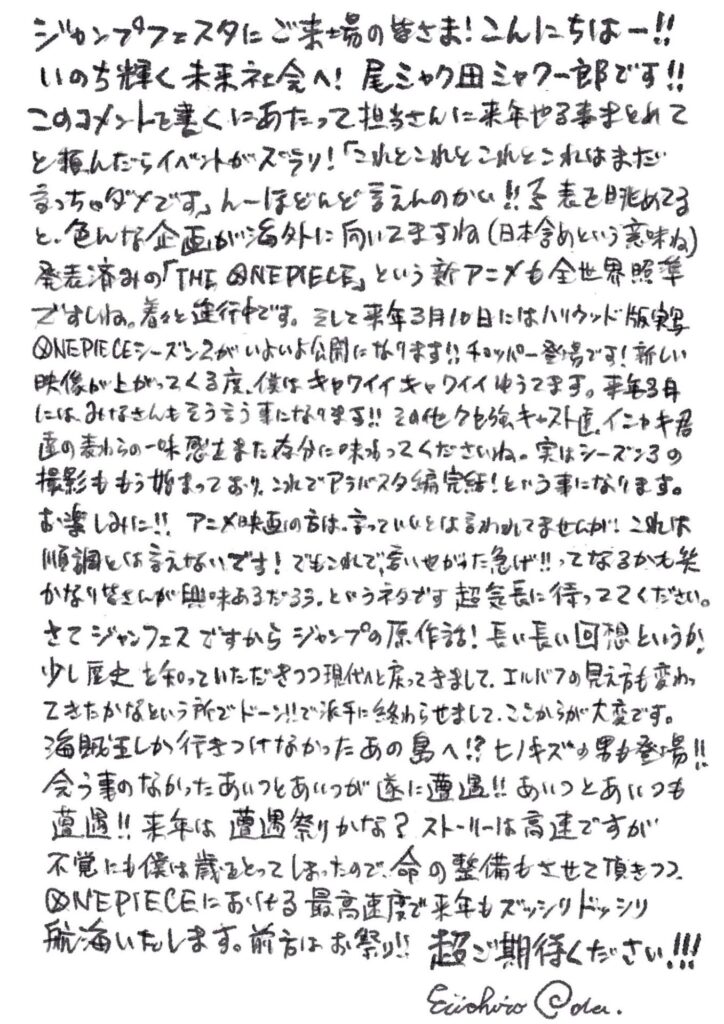 ジャンプフェスタにご来場の皆さま！こんにちはー!!
いのち輝く未来社会へ！ 尾ミャク田ミャク一郎です!!
このコメントを書くにあたって担当さんに来年やる事まとめて
と頼んだらイベントがズラリ！「これとこれとこれとこれはまだ
言っちゃダメです」んーほどんど言えんのかい!!予表を眺めてる
と、色んな企画が海外に向いてますね(日本含めという意味ね)
発表済みの「THE ONE PIECE」という新アニメも全世界照準
ですしね。着々と進行中です。そして来年3月10日にはハリウッド版実写
ONE PIECEシーズン2がいよいよ公開になります!!チョッパー登場です！新しい
映像が上がってくる度、僕はキャワイイキャワイイゆうてます。来年3月
には、みなさんもそう言う事になります!!その他クセ強キャスト達、イニャキ君
達の麦わらの一味感をまた存分に味わってくださいね。実はシーズン3の
撮影ももう始まっており、これでアラバスタ編完結！という事になります。
お楽しみに!! アニメ映画の方は、言っていいとは言われてませんが！これは
順調とは言えないです！でもこれで、言いやがった急げ!!ってなるかも笑
かなり皆さんが興味あるだろう、というネタです 超気長に待っててください。
さてジャンフェスですからジャンプの原作話！長い長い回想というか、
少し歴史を知っていただきつつ現代へと戻ってきまして、エルバフの見え方も変わっ
てきたかなという所でドーン!!で派手に終わらせまして、ここからが大変です。
海賊王しか行きつけなかったあの島へ!?ヒノキズの男も登場!!
会う事のなかったあいつとあいつが遂に遭遇!!あいつとあいつも
遭遇!!来年は遭遇祭りかな？ストーリーは高速ですが
不覚にも僕は歳をとってしまったので、命の整備もさせて頂きつつ、
ONE PIECEにおける最高速度で来年もズッシリドッシリ
航海いたします。前方はお祭り!! 超ご期待ください!!!
Eiichiro Oda.